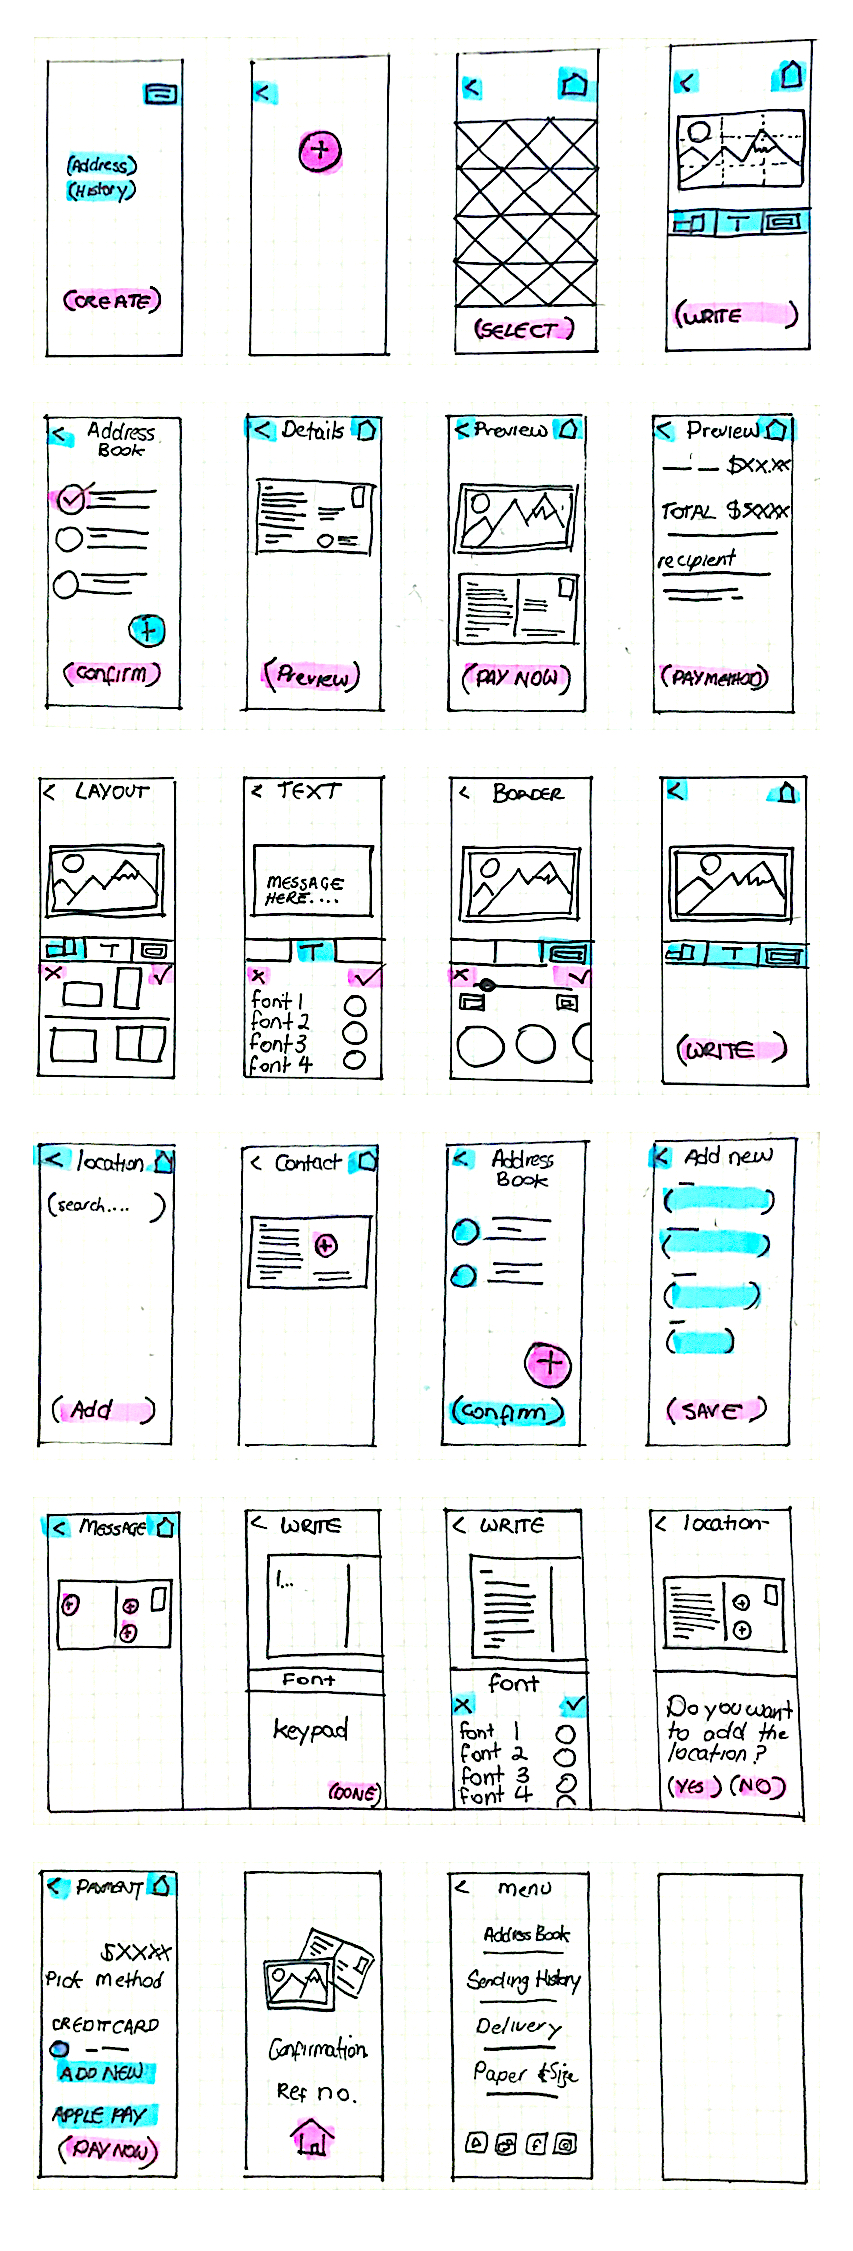 (Address)
(History)
(CREATE)
<
+
<
(SELECT)
<
T
(WRITE )
< Address
Book
+
(confirm)
< Details
(Preview)
< Preview
(PAY NOW)
< Preview
$XX.XX
TOTAL $5XXXX
recipient
(PAY METHOD)
< LAYOUT
T
X ✓
< TEXT
MESSAGE
HERE....
T
X ✓
font 1
font 2
font 3
font 4
< BORDER
X ✓
<
T
(WRITE )
< location
(search.... )
(Add )
< Contact
+
< Address
Book
+
(confirm)
< Add new
(SAVE )
< MESSAGE
+ +
+
< WRITE
I...
Font
keypad
(DONE)
< WRITE
font
X ✓
font 1
font 2
font 3
font 4
< location
+
+
Do you want
to add the
location?
(YES) (NO)
< PAYMENT
$XXXX
Pick method
CREDIT CARD
ADD NEW
APPLE PAY
(PAY NOW)
Confirmation
Ref no.
< menu
Address Book
Sending History
Delivery
Paper & Size
f